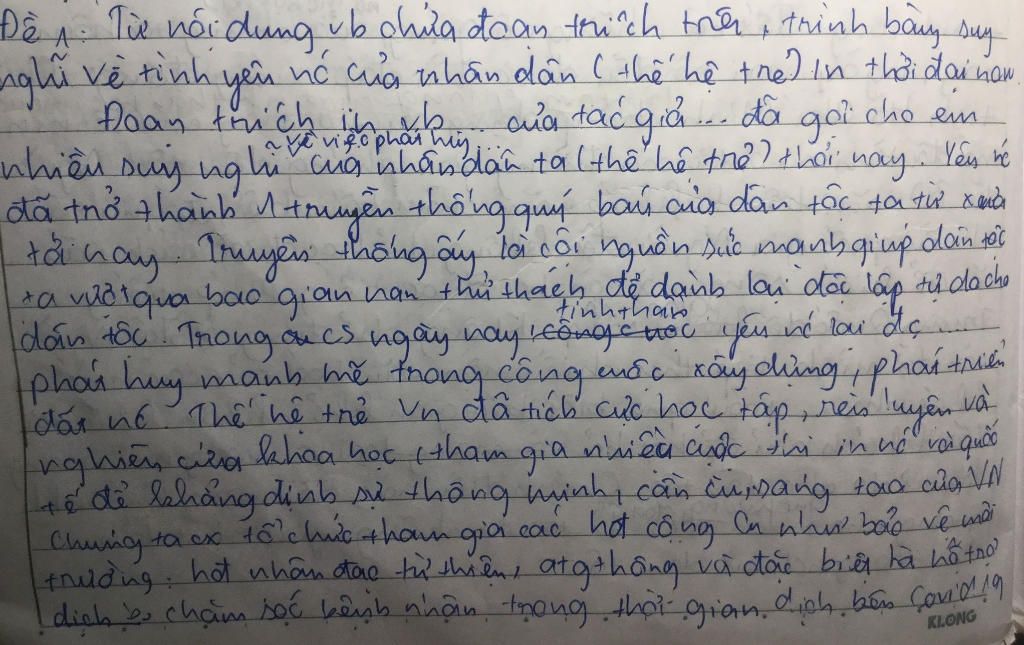 Đề 1: Từ nội dung vb chứa đoạn trích trên, trình bày suy
nghĩ về tình yêu nc của nhân dân (thế hệ trẻ) in thời đại nay.
Đoạn trích in vb... của tác giả... đã gợi cho em
về việc phát huy
nhiều suy nghĩ của nhân dân ta (thế hệ trẻ) thời nay. Yêu nc
đã trở thành 1 truyền thống quý báu của dân tộc ta từ xưa
tới nay. Truyền thống ấy là cội nguồn sức mạnh giúp dân tộc
ta vượt qua bao gian nan thử thách để dành lại độc lập tự do cho
tinh thần
dân tộc. Trong cs ngày nay, công cuộc yêu nc lại đc ....
phát huy mạnh mẽ trong công cuộc xây dựng, phát triển
đất nc. Thế hệ trẻ VN đã tích cực học tập, rèn luyện và
nghiên cứu khoa học (tham gia nhiều cuộc thi in nc và quốc
tế để khẳng định sự thông minh, cần cù, sáng tạo của VN
Chúng ta cx tổ chức tham gia các hđ cộng như bảo vệ môi
trường, hđ nhân đạo từ thiện, atgthông và đặc biệt là hỗ trợ
dịch chăm sóc bệnh nhân trong thời gian dịch bệnh Covid19
KLONG